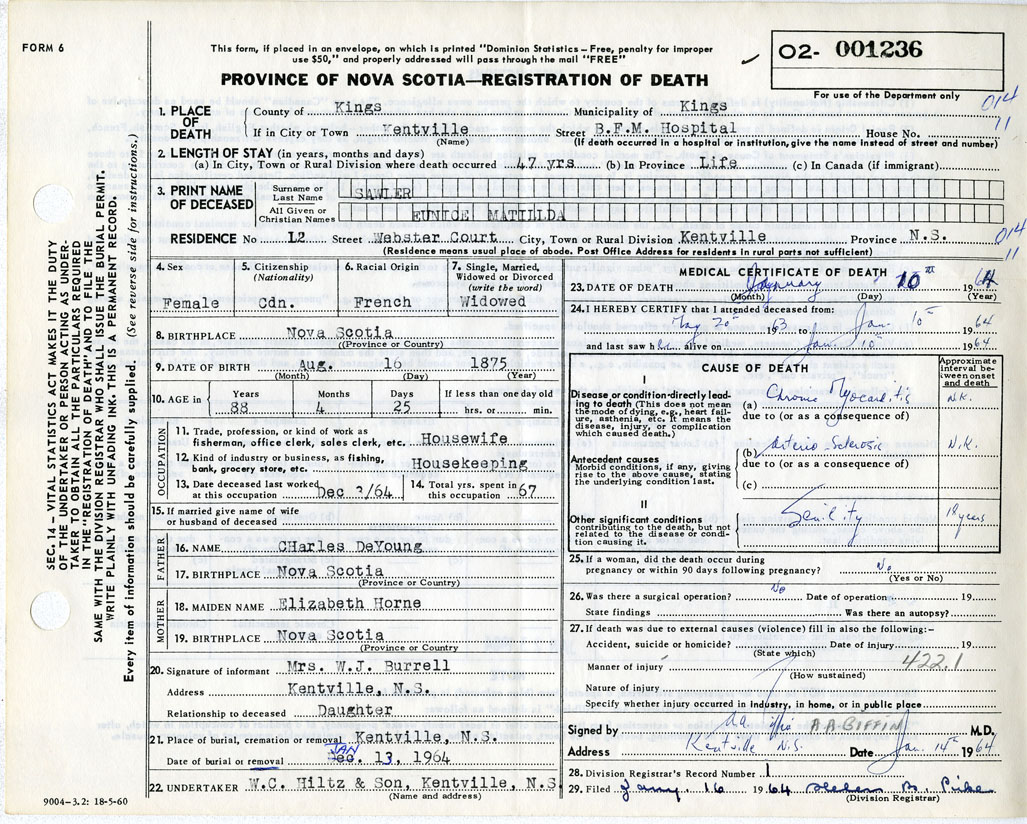 FORM 6
This form, if placed in an envelope, on which is printed "Dominion Statistics – Free, penalty for improper
use $50," and properly addressed will pass through the mail "FREE"
✓ O2- 001236
PROVINCE OF NOVA SCOTIA—REGISTRATION OF DEATH
For use of the Department only
014
11
1. PLACE OF DEATH
County of Kings Municipality of Kings
If in City or Town Kentville Street B.F.M. Hospital House No.
(Name) (If death occurred in a hospital or institution, give the name instead of street and number)
2. LENGTH OF STAY (in years, months and days)
(a) In City, Town or Rural Division where death occurred 47 yrs. (b) In Province Life (c) In Canada (if immigrant)
3. PRINT NAME OF DECEASED
Surname or Last Name SAWLER
All Given or Christian Names EUNICE MATILLDA
RESIDENCE No 12 Street Webster Court City, Town or Rural Division Kentville Province N.S.
014
11
(Residence means usual place of abode. Post Office Address for residents in rural parts not sufficient)
4. Sex
Female
5. Citizenship
(Nationality)
Cdn.
6. Racial Origin
French
7. Single, Married,
Widowed or Divorced
(write the word)
Widowed
8. BIRTHPLACE Nova Scotia
(Province or Country)
9. DATE OF BIRTH Aug. 16 1875
(Month) (Day) (Year)
10. AGE in
Years Months Days If less than one day old
88 4 25 hrs. or min.
OCCUPATION
11. Trade, profession, or kind of work as
fisherman, office clerk, sales clerk, etc. Housewife
12. Kind of industry or business, as fishing,
bank, grocery store, etc. Housekeeping
13. Date deceased last worked
at this occupation Dec /64
14. Total yrs. spent in
this occupation 67
15. If married give name of wife
or husband of deceased
FATHER
16. NAME CHarles DeYoung
17. BIRTHPLACE Nova Scotia
(Province or Country)
MOTHER
18. MAIDEN NAME Elizabeth Horne
19. BIRTHPLACE Nova Scotia
(Province or Country
20. Signature of informant Mrs. W.J. Burrell
Address Kentville, N.S.
Relationship to deceased Daughter
21. Place of burial, cremation or removal Kentville, N.S.
JAN
Date of burial or removal 13, 1964
22. UNDERTAKER W.C. Hiltz & Son, Kentville, N.S
(Name and address)
MEDICAL CERTIFICATE OF DEATH
23. DATE OF DEATH January 10th 1964
(Month) (Day) (Year)
24. I HEREBY CERTIFY that I attended deceased from:
May 20th 1963 to Jan. 10th 1964
and last saw her alive on Jan. 10th 1964
CAUSE OF DEATH
Approximate
interval be-
tween onset
and death
I
Disease or condition directly lead-
ing to death (This does not mean
the mode of dying, e.g., heart fail-
ure, asthenia, etc. It means the
disease, injury, or complication
which caused death.)
(a) Chronic Myocarditis N.K.
due to (or as a consequence of)
Antecedent causes
Morbid conditions, if any, giving
rise to the above cause, stating
the underlying condition last.
(b) Arterio-Sclerosis N.K.
due to (or as a consequence of)
(c)
II
Other significant conditions
contributing to the death, but not
related to the disease or condi-
tion causing it.
Senility years
25. If a woman, did the death occur during
pregnancy or within 90 days following pregnancy? No
(Yes or No)
26. Was there a surgical operation? No Date of operation 19
State findings Was there an autopsy?
27. If death was due to external causes (violence) fill in also the following:–
Accident, suicide or homicide? Date of injury 19
(State which)
Manner of injury 422.1
(How sustained)
Nature of injury
Specify whether injury occurred in industry, in home, or in public place
Signed by AA Giffin A A GIFFIN M.D.
Address Kentville N.S. Date Jan. 14th 1964
28. Division Registrar's Record Number 1
29. Filed Jany. 16 1964 Helen B. Pike
(Division Registrar)
SEC. 14 – VITAL STATISTICS ACT MAKES IT THE DUTY
OF THE UNDERTAKER OR PERSON ACTING AS UNDER-
TAKER TO OBTAIN ALL THE PARTICULARS REQUIRED
IN THE "REGISTRATION OF DEATH" AND TO FILE THE
SAME WITH THE DIVISION REGISTRAR WHO SHALL ISSUE THE BURIAL PERMIT.
WRITE PLAINLY WITH UNFADING INK. THIS IS A PERMANENT RECORD.
Every item of information should be carefully supplied. (See reverse side for instructions.)
9004–3.2: 18-5-60